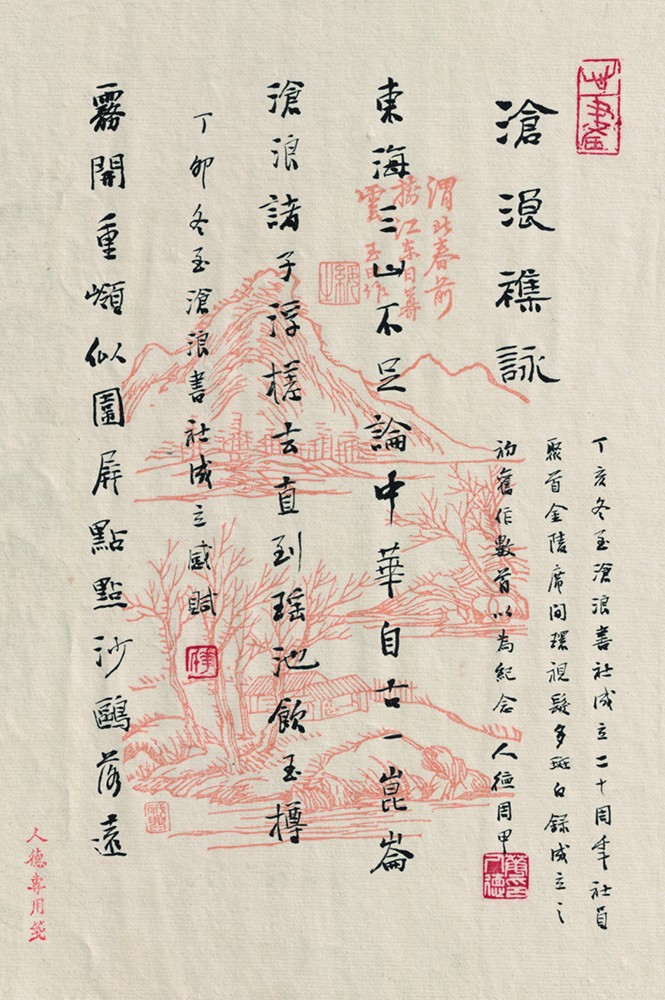 滄浪襍詠
丁亥冬至滄浪書社成立二十周年社員
聚首金陵席間環視鬓多斑白録成立之
初舊作數首以為紀念 人德周甲
渭北春前
樹江東日暮
雲 作
東海三山不足論中華自古一崑崙
滄浪諸子浮槎去直到瑶池飲玉樽
丁卯冬至滄浪書社成立感賦
霧開重嶺似圍屏點點沙鷗落遠
人德專用箋